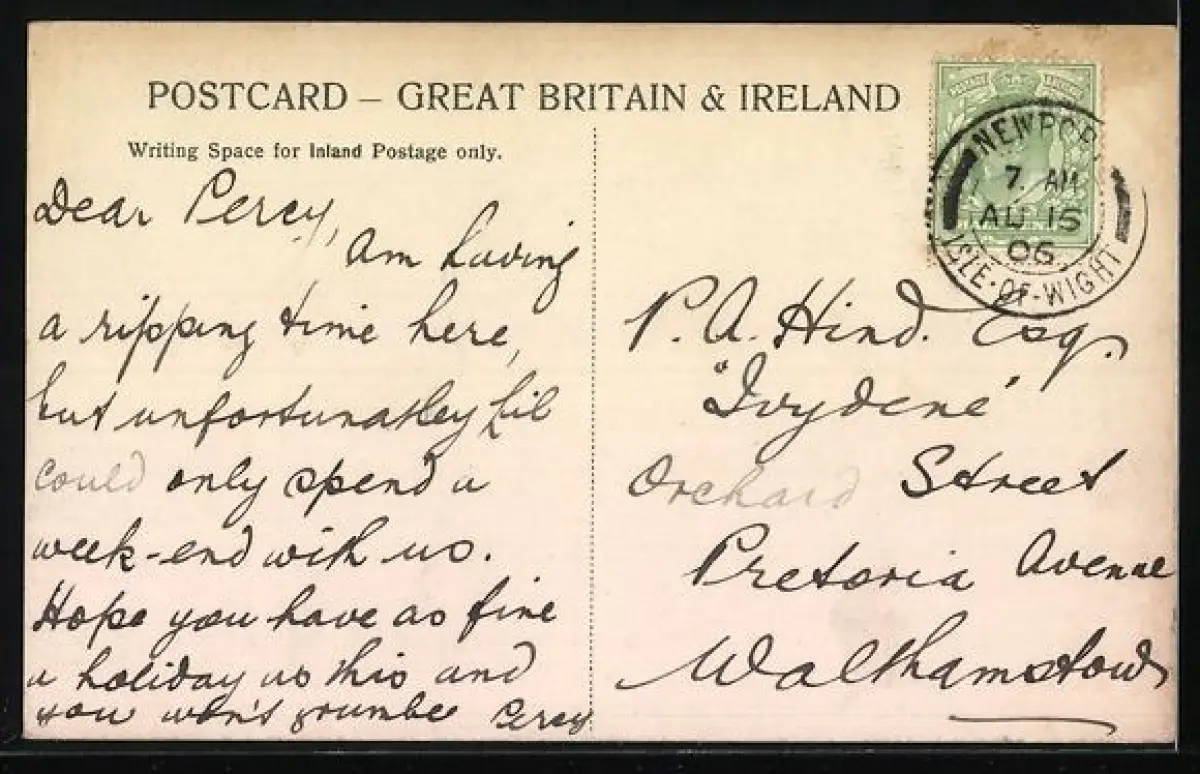 POSTCARD – GREAT BRITAIN & IRELAND
Writing Space for Inland Postage only.
Dear Percy,
Am having
a ripping time here,
but unfortunatley Lil
could only spend a
week-end with us.
Hope you have as fine
a holiday as this and
you won't grumble Percy.
NEWPOR
7. AM
AU 15
06
ISLE·OF·WIGHT
P. A. Hind. Esq.
"Ivydene"
Orchard Street
Pretoria Avenue
Walthamstow